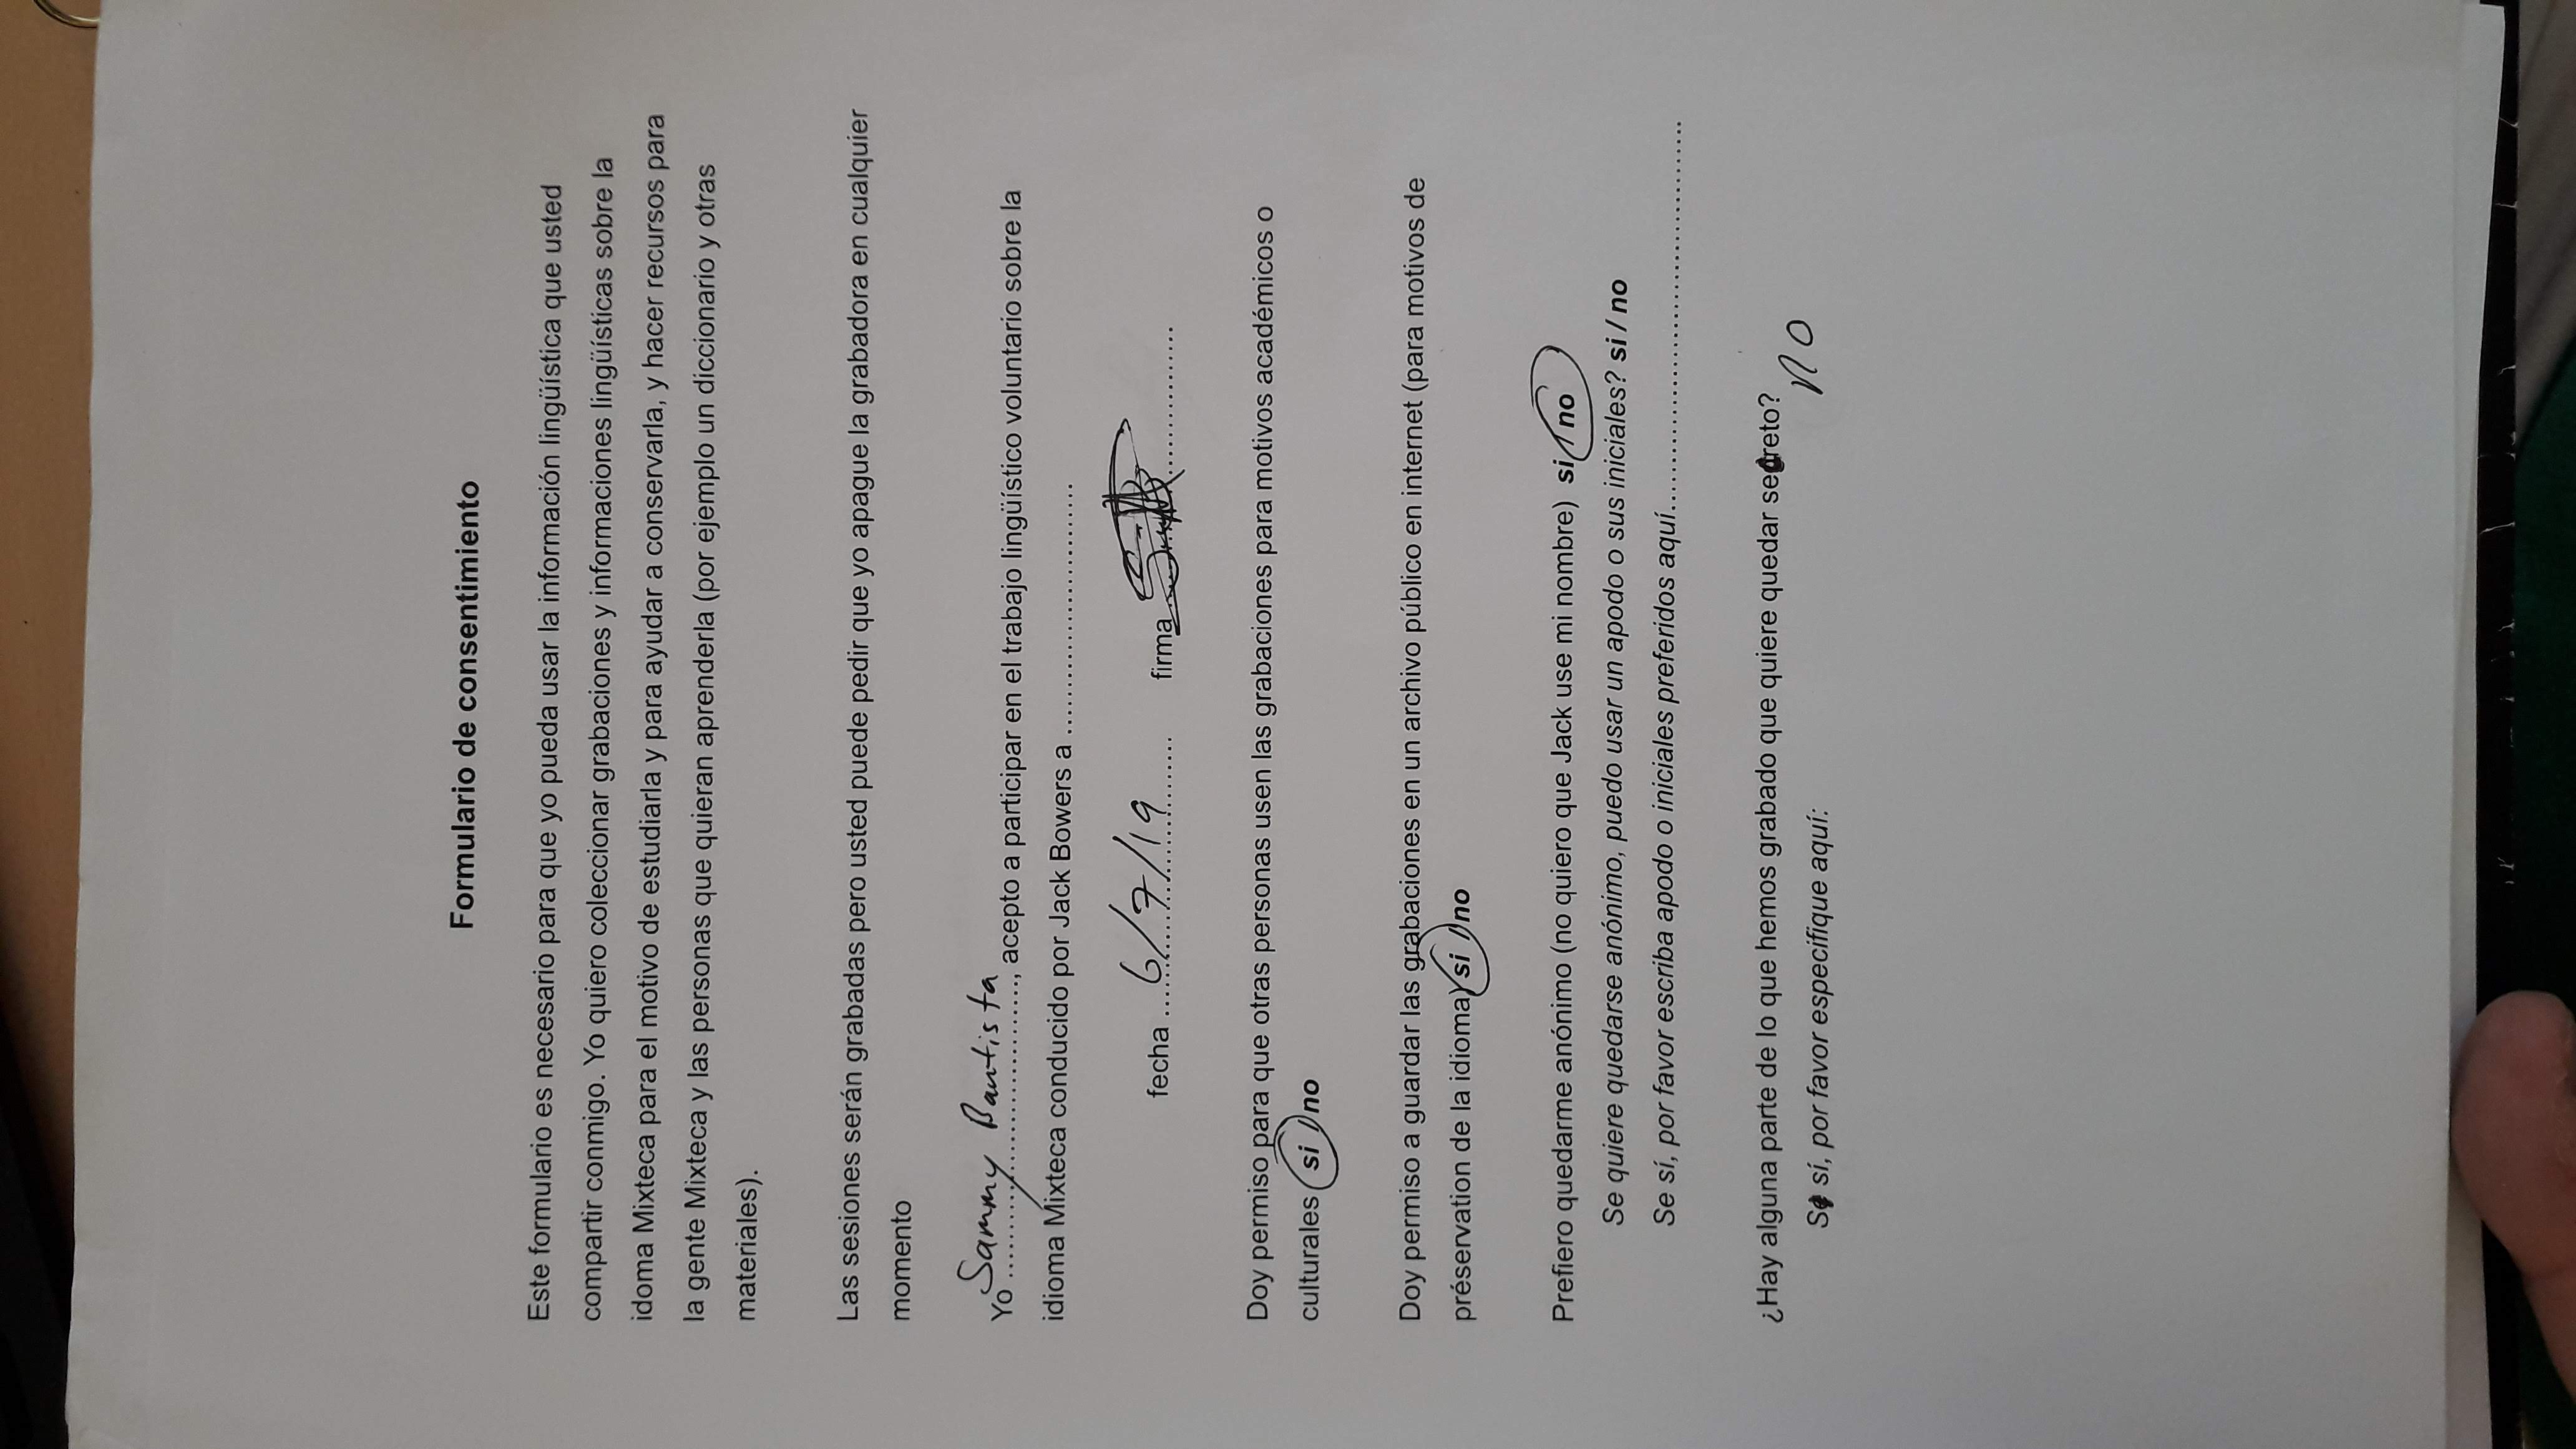 Formulario de consentimiento
Este formulario es necesario para que yo pueda usar la información lingüística que usted
compartir conmigo. Yo quiero coleccionar grabaciones y informaciones lingüísticas sobre la
idoma Mixteca para el motivo de estudiarla y para ayudar a conservarla, y hacer recursos para
la gente Mixteca y las personas que quieran aprenderla (por ejemplo un diccionario y otras
materiales).
Las sesiones serán grabadas pero usted puede pedir que yo apague la grabadora en cualquier
momento
Yo Sammy Bautista, acepto a participar en el trabajo lingüístico voluntario sobre la
idioma Mixteca conducido por Jack Bowers a ...........................
fecha 6/7/19 firma
Doy permiso para que otras personas usen las grabaciones para motivos académicos o
culturales si / no
Doy permiso a guardar las grabaciones en un archivo público en internet (para motivos de
préservation de la idioma) si / no
Prefiero quedarme anónimo (no quiero que Jack use mi nombre) si / no
Se quiere quedarse anónimo, puedo usar un apodo o sus iniciales? si / no
Se sí, por favor escriba apodo o iniciales preferidos aquí..........................................
¿Hay alguna parte de lo que hemos grabado que quiere quedar secreto?
no
Si sí, por favor especifique aquí: